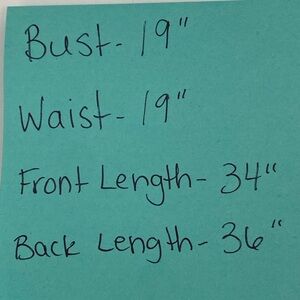 Bust- 19"
Waist- 19"
Front Length- 34"
Back Length- 36"